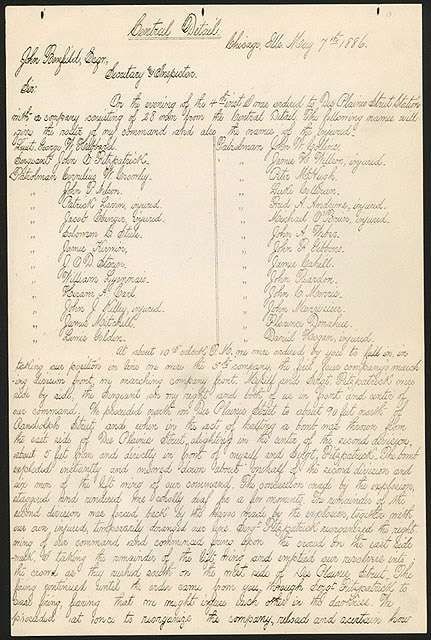 Central Detail.
Chicago, Ills. May 7th 1886.
John Bonfield, Esqr.,
Secretary & Inspector.
Sir:
On the evening of the 4th inst. I was ordered to Des Plaines Street Station
with a company consisting of 28 men from the Central Detail. The following names will
give the roster of my command and also the names of the injured.
Lieut. George W. Hubbard. Patrolman John W. Collins.
Sergeant John E. Fitzpatrick. " James H. Wilson, injured.
Patrolman Cornelius W. Crowly. " Peter McHugh.
" John P. Nelson. "
" Patrick Lavin, injured. " Fred A. Andrews, injured.
" Jacob Ebinger, injured. " Michael O'Brien, injured.
" Solomon C. Steele. " John A.
" James Kerwin. " John F. Gibbons.
" " James Cahill.
" William " John Reardon.
" Hiram A. Earl " John C. Morris.
" John J. Kelley, injured. " John Morweiser.
" James Mitchell. " Florence Donohue.
" Lewis Golden. " Daniel Hogan, injured.
At about 10 30 o'clock P.M. we were ordered by you to fall in, in
taking our position in line we were the 5th company, the first four companys march-
ing division front, my marching company front. Myself and Sergt. Fitzpatrick were
side by side, the Sergeant on my right and both of us in front and center of
our command. We proceeded north on Des Plaines Street to about 90 feet north of
Randolph Street and when in the act of halting a bomb was thrown from
the east side of Des Plaines Street, alighting in the center of the second division,
about 5 feet from and directly in front of myself and Sergt. Fitzpatrick. The bomb
exploded instantly and mowed down about one half of the second division and
six men of the left wing of our command. The concussion made by the explosion,
staggered and rendered me wholly deaf for a few moments. The remainder of the
second division was forced back by the waves made by the explosion, together with
our own injured, temporarily deranged our line. Sergt. Fitzpatrick reassembled the right
wing of our command and commenced firing upon the crowd on the east side
walk. I taking the remainder of the left wing and emptied our revolvers into
the crowd as they rushed south on the west side of Des Plaines Street. The
firing continued until the order came from you through Sergt. Fitzpatrick to
cease firing, fearing that we might injure each other in the darkness. We
proceeded at once to reorganize the company, reload and ascertain how